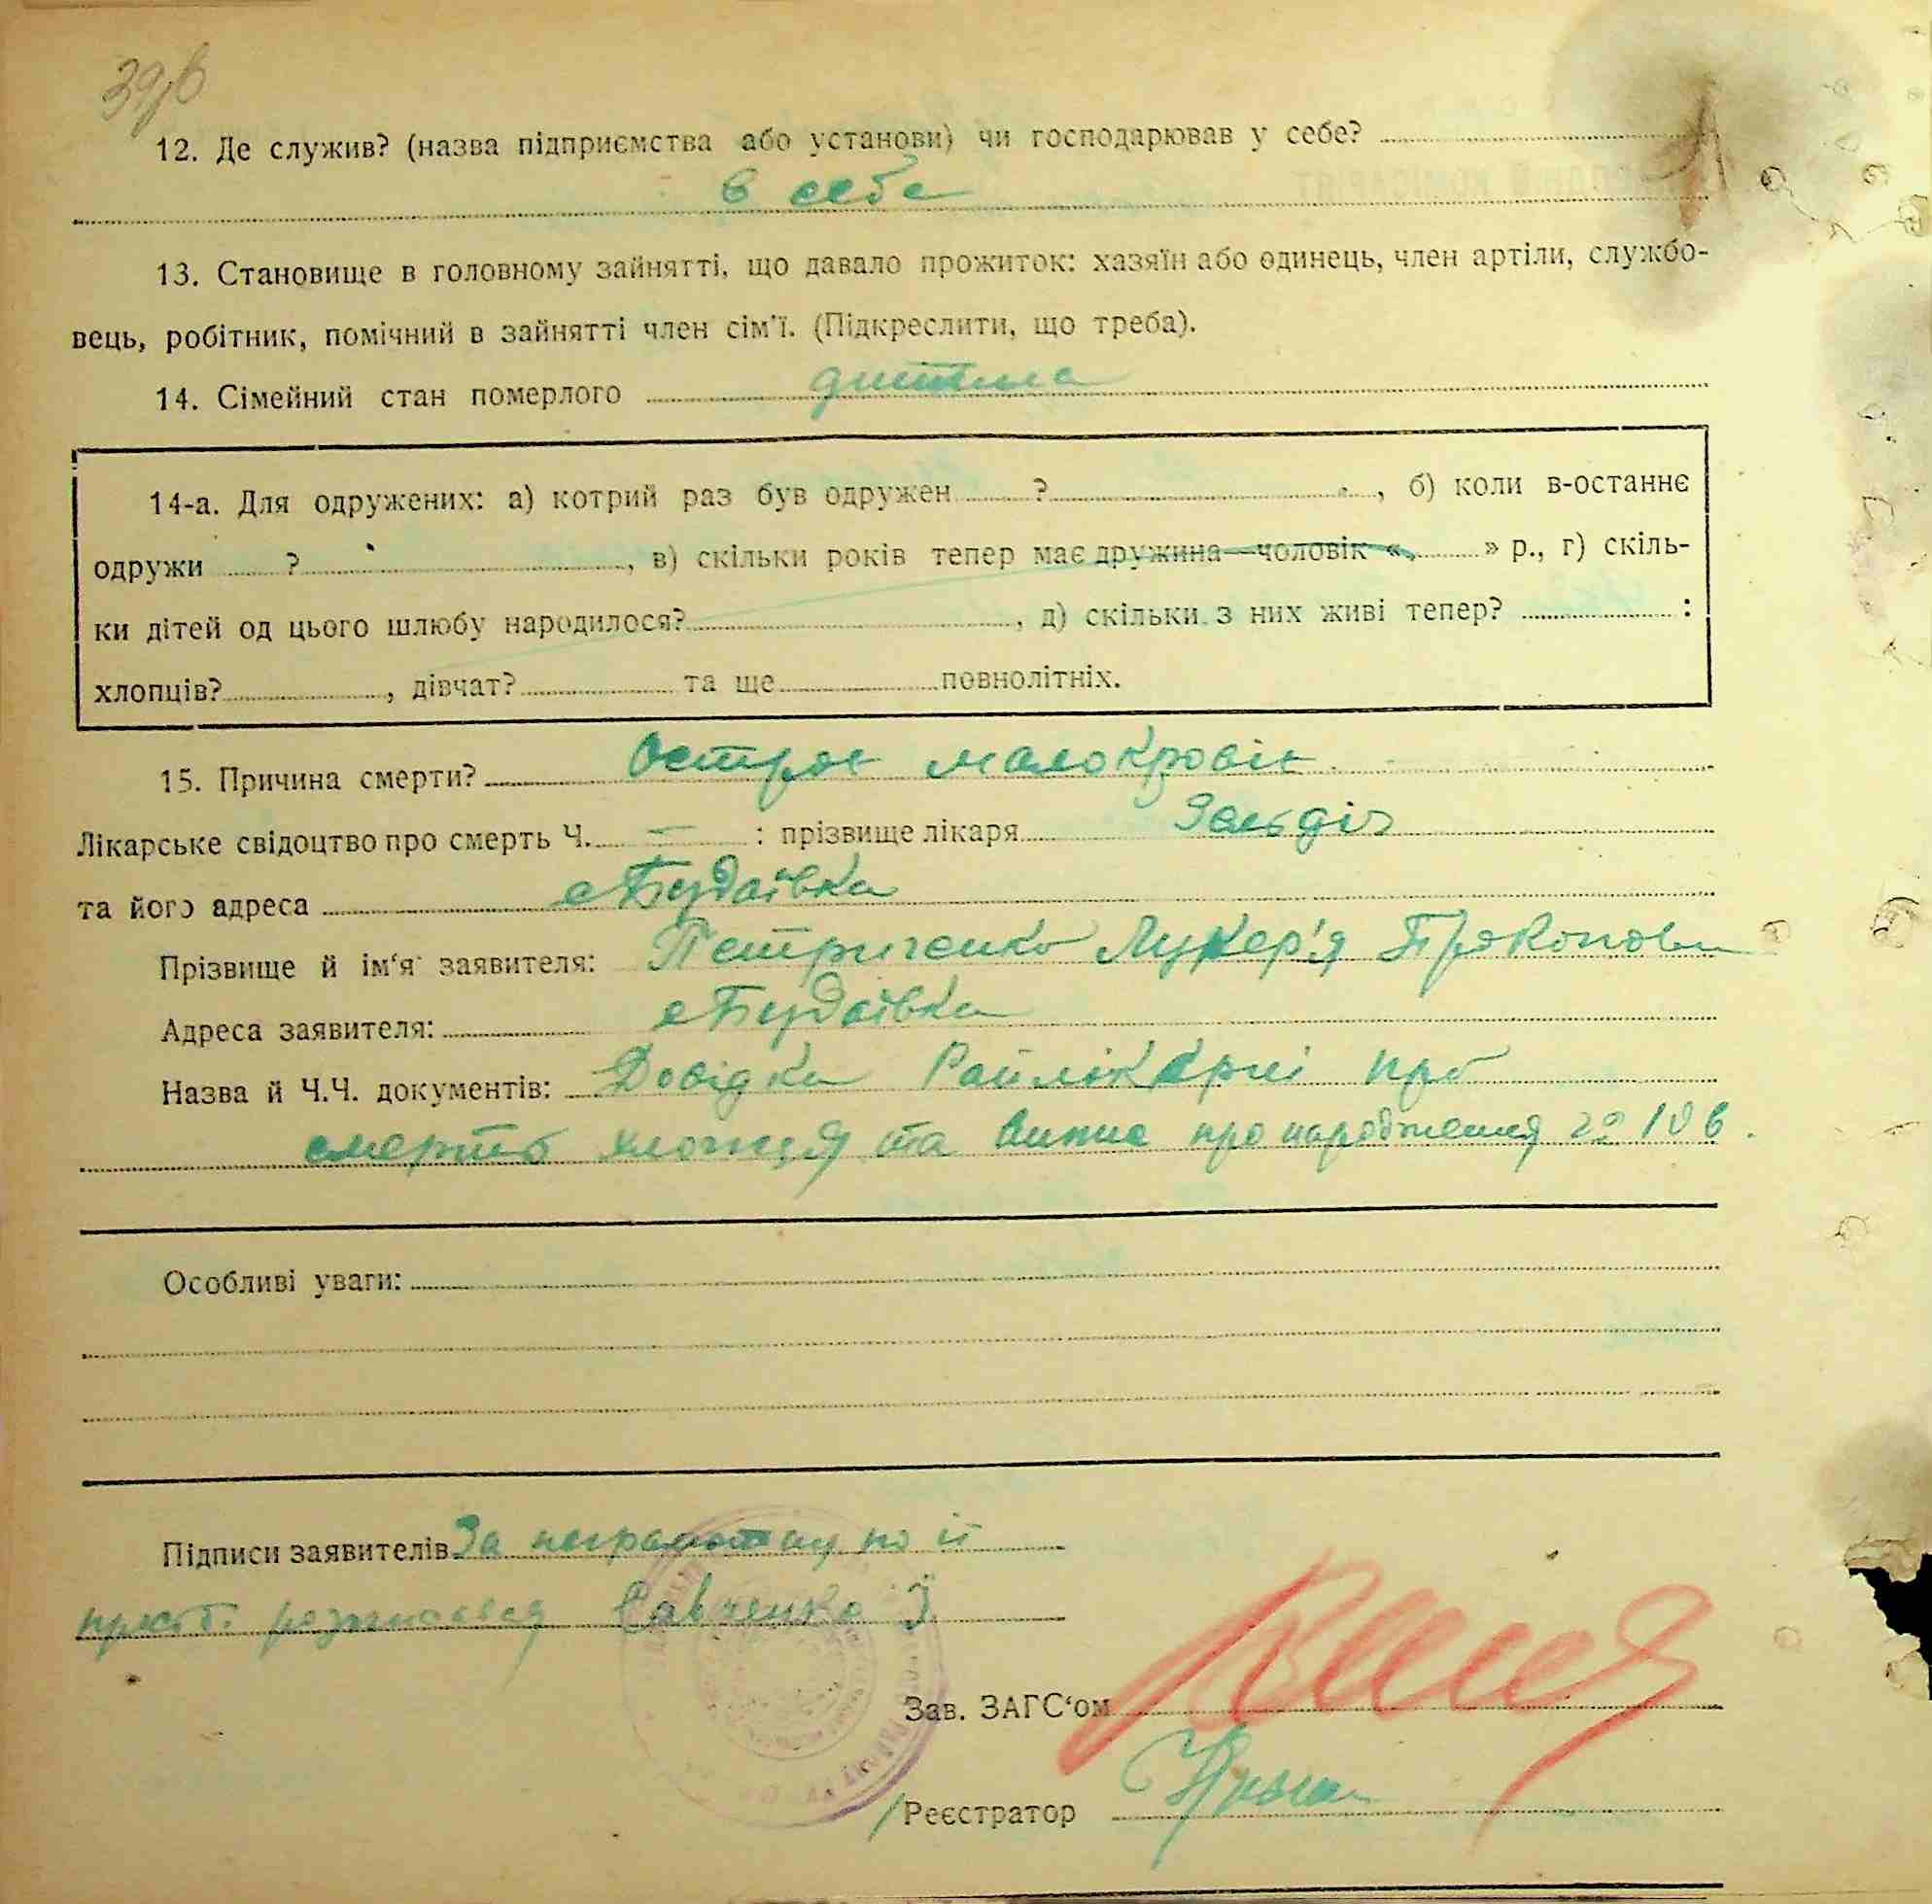 12. Де служив? (назва підприємства або установи) чи господарював у себе?
в себе
13. Становище в головному зайнятті, що давало прожиток: хазяїн або одинець, член артіли, службо-
вець, робітник, помічний в зайнятті член сім'ї. (Підкреслити, що треба).
14. Сімейний стан померлого дитина
14-а. Для одружених: а) котрий раз був одружен ?, б) коли в-останнє
одружи ?, в) скільки років тепер має дружина—чоловік « » р., г) скіль-
ки дітей од цього шлюбу народилося?, д) скільки з них живі тепер? :
хлопців?, дівчат? та ще повнолітніх.
15. Причина смерти? Острое малокровіе
Лікарське свідоцтво про смерть Ч. — : прізвище лікаря
та його адреса с Будаївка
Прізвище й ім'я заявителя: Петриченко Лукер'я
Адреса заявителя: с Будаївка
Назва й Ч.Ч. документів: Довідка Райлікарні про
смерть хлопця та випис про народження
Особливі уваги:
Підписи заявителів За неграмотну по її
прозб. розписався Савченко
Зав. ЗАГС'ом
Реєстратор